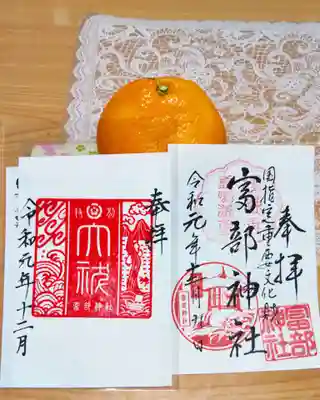 奉拝
特別
大祓
富部神社
令和元年十二月
奉拝
国指定重要文化財
富部神社
令和元年十二月
富部
神社